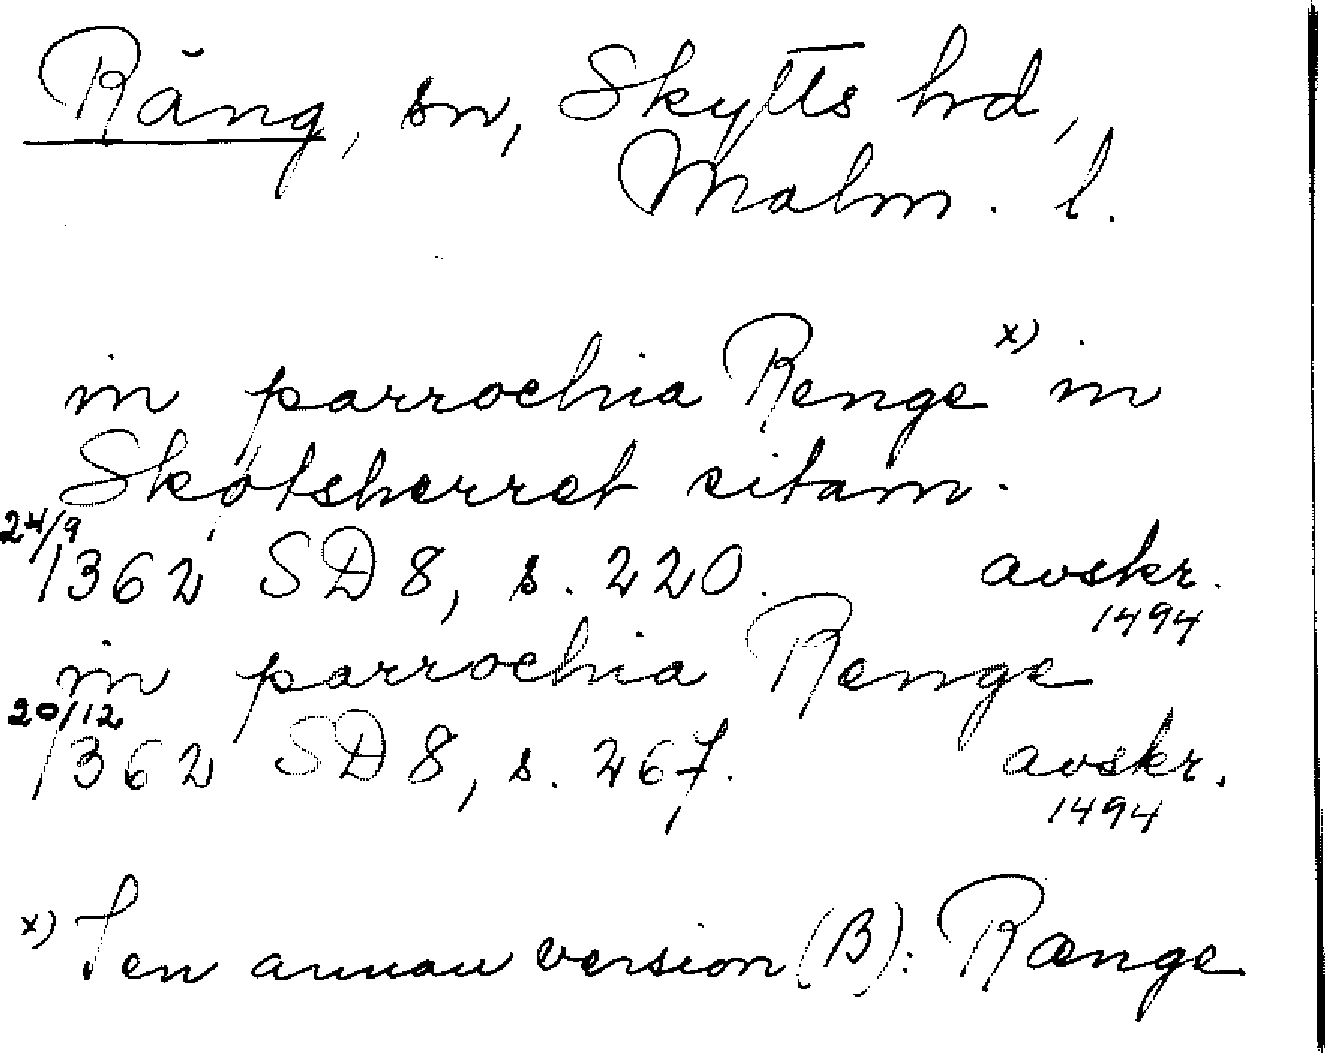 Räng, sn, Skytts hd,
Malm. l.
in parrochia Renge x) in
Skøtsherret sitam.
24/9 1362 SD 8, s. 220. avskr. 1494
in parrochia Renge
20/12 1362 SD 8, s. 267. avskr. 1494
x) I en annan version (B): Rænge